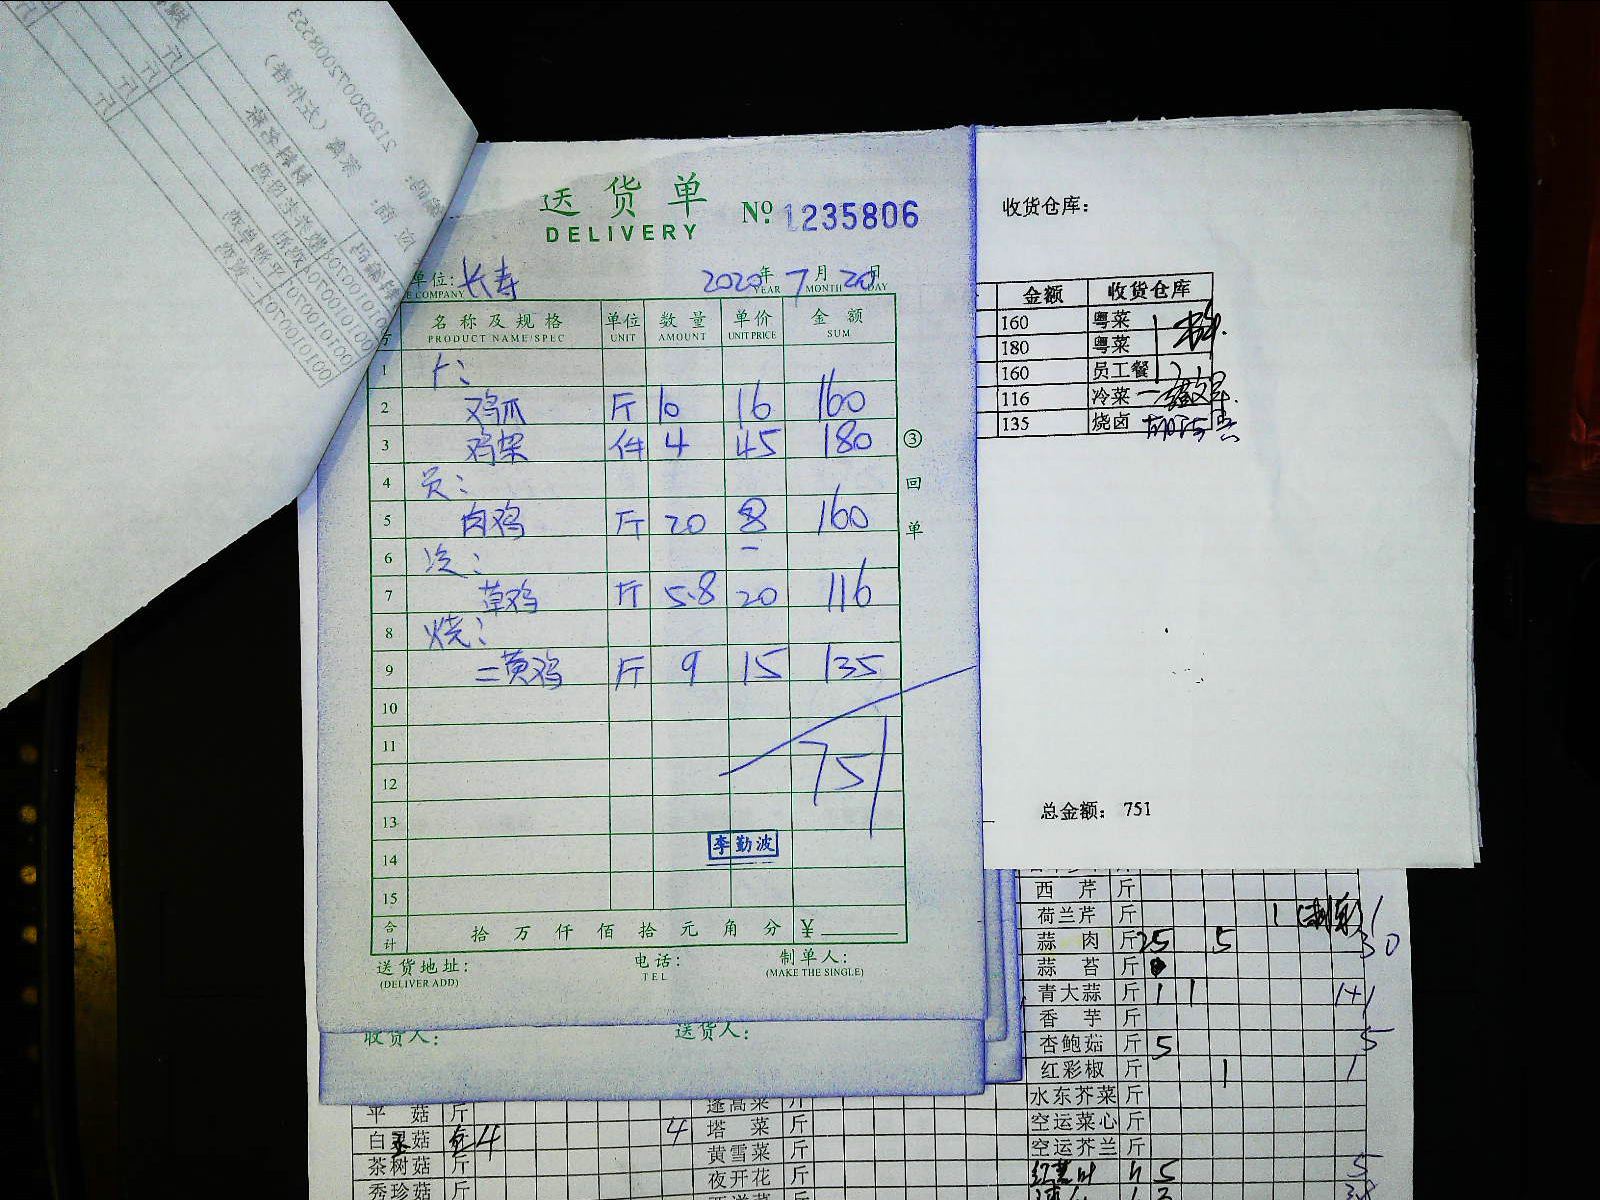 送货单
DELIVERY
№ 1235806
单位: 长寿
2020年 7月 20日
YEAR MONTH DAY
名称及规格 单位 数量 单价 金额
PRODUCT NAME/SPEC UNIT AMOUNT UNIT PRICE SUM
1
2 鸡爪 斤 10 16 160
3 鸡架 件 4 45 180
4 员:
5 肉鸡 斤 20 8 160
6 冷:
7 草鸡 斤 5.8 20 116
8 烧:
9 三黄鸡 斤 9 15 135
10
11
12 751
13
李勤波
14
15
合计 拾 万 仟 佰 拾 元 角 分 ¥
送货地址: 电话: 制单人:
(DELIVER ADD) TEL (MAKE THE SINGLE)
③回单
收货人: 送货人:
收货仓库:
金额 收货仓库
160 粤菜
180 粤菜
160 员工餐
116 冷菜
135 烧卤
总金额: 751
西芹 斤
荷兰芹 斤 1
蒜肉 斤 25 5 30
蒜苔 斤
青大蒜 斤 1 1 1+1
香芋 斤
杏鲍菇 斤 5 5
红彩椒 斤 1 1
水东芥菜 斤
空运菜心 斤
空运芥兰 斤
平菇 斤
茶树菇 斤
秀珍菇 斤
蓬高菜 斤
塔菜 斤
黄雪菜 斤
夜开花 斤